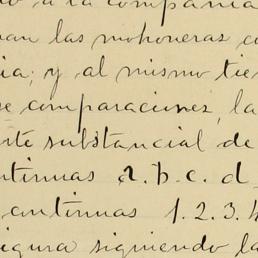 o a la compañia
uan las mohoneras co
ia; y al mismo tie
se comparaciones, la
rte substancial de
ntinuas a.b.c.d
continuas 1.2.3.4
igura siguiendo la